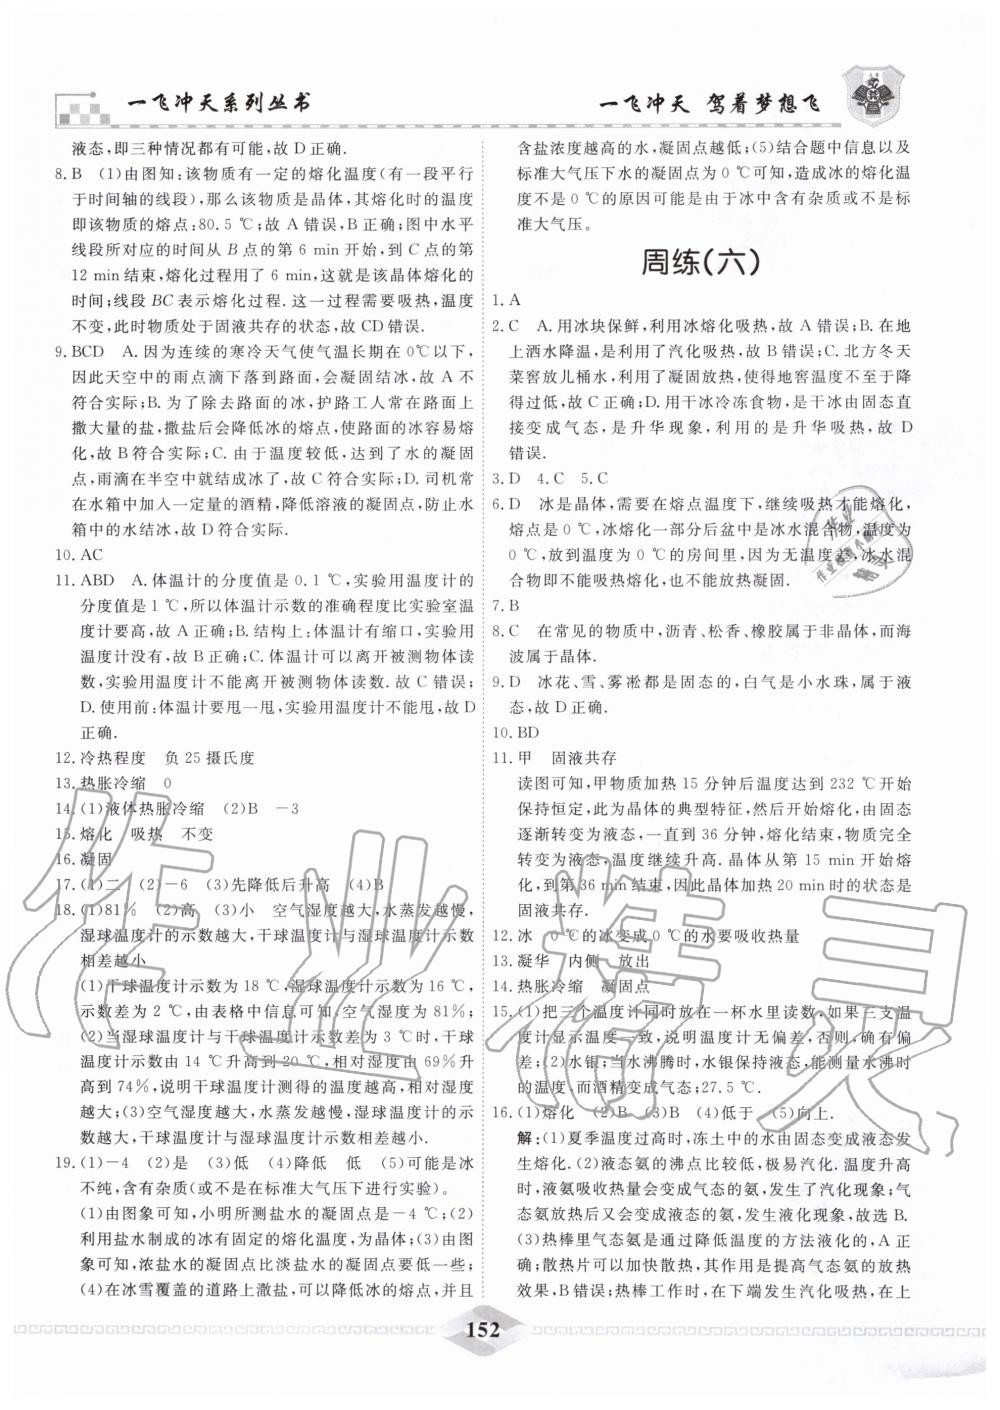 一飞冲天系列丛书
一飞冲天 驾着梦想飞
液态,即三种情况都有可能,故 D 正确.
8. B (1)由图知:该物质有一定的熔化温度(有一段平行
于时间轴的线段),那么该物质是晶体,其熔化时的温度
即该物质的熔点:80.5 ℃;故 A 错误,B 正确;图中水平
线段所对应的时间从 B 点的第 6 min 开始,到 C 点的第
12 min 结束,熔化过程用了 6 min,这就是该晶体熔化的
时间;线段 BC 表示熔化过程. 这一过程需要吸热,温度
不变,此时物质处于固液共存的状态,故 CD 错误.
9. BCD A. 因为连续的寒冷天气使气温长期在 0℃以下,
因此天空中的雨点滴下落到路面,会凝固结冰,故 A 不
符合实际;B. 为了除去路面的冰,护路工人常在路面上
撒大量的盐,撒盐后会降低冰的熔点,使路面的冰容易熔
化,故 B 符合实际;C. 由于温度较低,达到了水的凝固
点,雨滴在半空中就结成冰了,故 C 符合实际;D. 司机常
在水箱中加入一定量的酒精,降低溶液的凝固点,防止水
箱中的水结冰,故 D 符合实际.
10. AC
11. ABD A. 体温计的分度值是 0.1 ℃,实验用温度计的
分度值是 1 ℃,所以体温计示数的准确程度比实验室温
度计要高,故 A 正确;B. 结构上:体温计有缩口,实验用
温度计没有,故 B 正确;C. 体温计可以离开被测物体读
数,实验用温度计不能离开被测物体读数.故 C 错误;
D. 使用前:体温计要甩一甩,实验用温度计不能甩,故 D
正确.
12. 冷热程度 负 25 摄氏度
13. 热胀冷缩 0
14. (1)液体热胀冷缩 (2)B －3
15. 熔化 吸热 不变
16. 凝固
17. (1)二 (2)－6 (3)先降低后升高 (4)B
18. (1)81% (2)高 (3)小 空气湿度越大,水蒸发越慢,
湿球温度计的示数越大,干球温度计与湿球温度计示数
相差越小
(1)干球温度计示数为 18 ℃,湿球温度计示数为 16 ℃,
示数差为 2 ℃,由表格中信息可知,空气湿度为 81%;
(2)当湿球温度计与干球温度计示数差为 3 ℃时,干球
温度计示数由 14 ℃升高到 20 ℃,相对湿度由 69%升
高到 74%,说明干球温度计测得的温度越高,相对湿度
越大;(3)空气湿度越大,水蒸发越慢,湿球温度计的示
数越大,干球温度计与湿球温度计示数相差越小.
19. (1)－4 (2)是 (3)低 (4)降低 低 (5)可能是冰
不纯,含有杂质(或不是在标准大气压下进行实验)。
(1)由图象可知,小明所测盐水的凝固点是－4 ℃;(2)
利用盐水制成的冰有固定的熔化温度,为晶体;(3)由图
象可知,浓盐水的凝固点比淡盐水的凝固点要低一些;
(4)在冰雪覆盖的道路上撒盐,可以降低冰的熔点,并且
含盐浓度越高的水,凝固点越低;(5)结合题中信息以及
标准大气压下水的凝固点为 0 ℃可知,造成冰的熔化温
度不是 0 ℃的原因可能是由于冰中含有杂质或不是标
准大气压。
周练(六)
1. A
2. C A. 用冰块保鲜,利用冰熔化吸热,故 A 错误;B. 在地
上洒水降温,是利用了汽化吸热,故 B 错误;C. 北方冬天
菜窖放几桶水,利用了凝固放热,使得地窖温度不至于降
得过低,故 C 正确;D. 用干冰冷冻食物,是干冰由固态直
接变成气态,是升华现象,利用的是升华吸热,故 D
错误.
3. D 4. C 5. C
6. D 冰是晶体,需要在熔点温度下,继续吸热才能熔化,
熔点是 0 ℃,冰熔化一部分后盆中是冰水混合物,温度为
0 ℃,放到温度为 0 ℃的房间里,因为无温度差,冰水混
合物即不能吸热熔化,也不能放热凝固.
7. B
8. C 在常见的物质中,沥青、松香、橡胶属于非晶体,而海
波属于晶体.
9. D 冰花、雪、雾凇都是固态的,白气是小水珠,属于液
态,故 D 正确.
10. BD
11. 甲 固液共存
读图可知,甲物质加热 15 分钟后温度达到 232 ℃开始
保持恒定,此为晶体的典型特征,然后开始熔化,由固态
逐渐转变为液态,一直到 36 分钟,熔化结束,物质完全
转变为液态,温度继续升高. 晶体从第 15 min 开始熔
化,到第 36 min 结束,因此晶体加热 20 min 时的状态是
固液共存.
12. 冰 0 ℃的冰变成 0 ℃的水要吸收热量
13. 凝华 内侧 放出
14. 热胀冷缩 凝固点
15. (1)把三个温度计同时放在一杯水里读数,如果三支温
度计显示温度一致,说明温度计无偏差,否则,确有偏
差;(2)水银;当水沸腾时,水银保持液态,能测量水沸时
的温度,而酒精变成气态;27.5 ℃.
16. (1)熔化 (2)B (3)B (4)低于 (5)向上.
解:(1)夏季温度过高时,冻土中的水由固态变成液态发
生熔化.(2)液态氨的沸点比较低,极易汽化. 温度升高
时,液氨吸收热量会变成气态的氨,发生了汽化现象;气
态氨放热后又会变成液态的氨,发生液化现象,故选 B.
(3)热棒里气态氨是通过降低温度的方法液化的,A 正
确;散热片可以加快散热,其作用是提高气态氨的放热
效果,B 错误;热棒工作时,在下端发生汽化吸热,在上
152
作业精灵